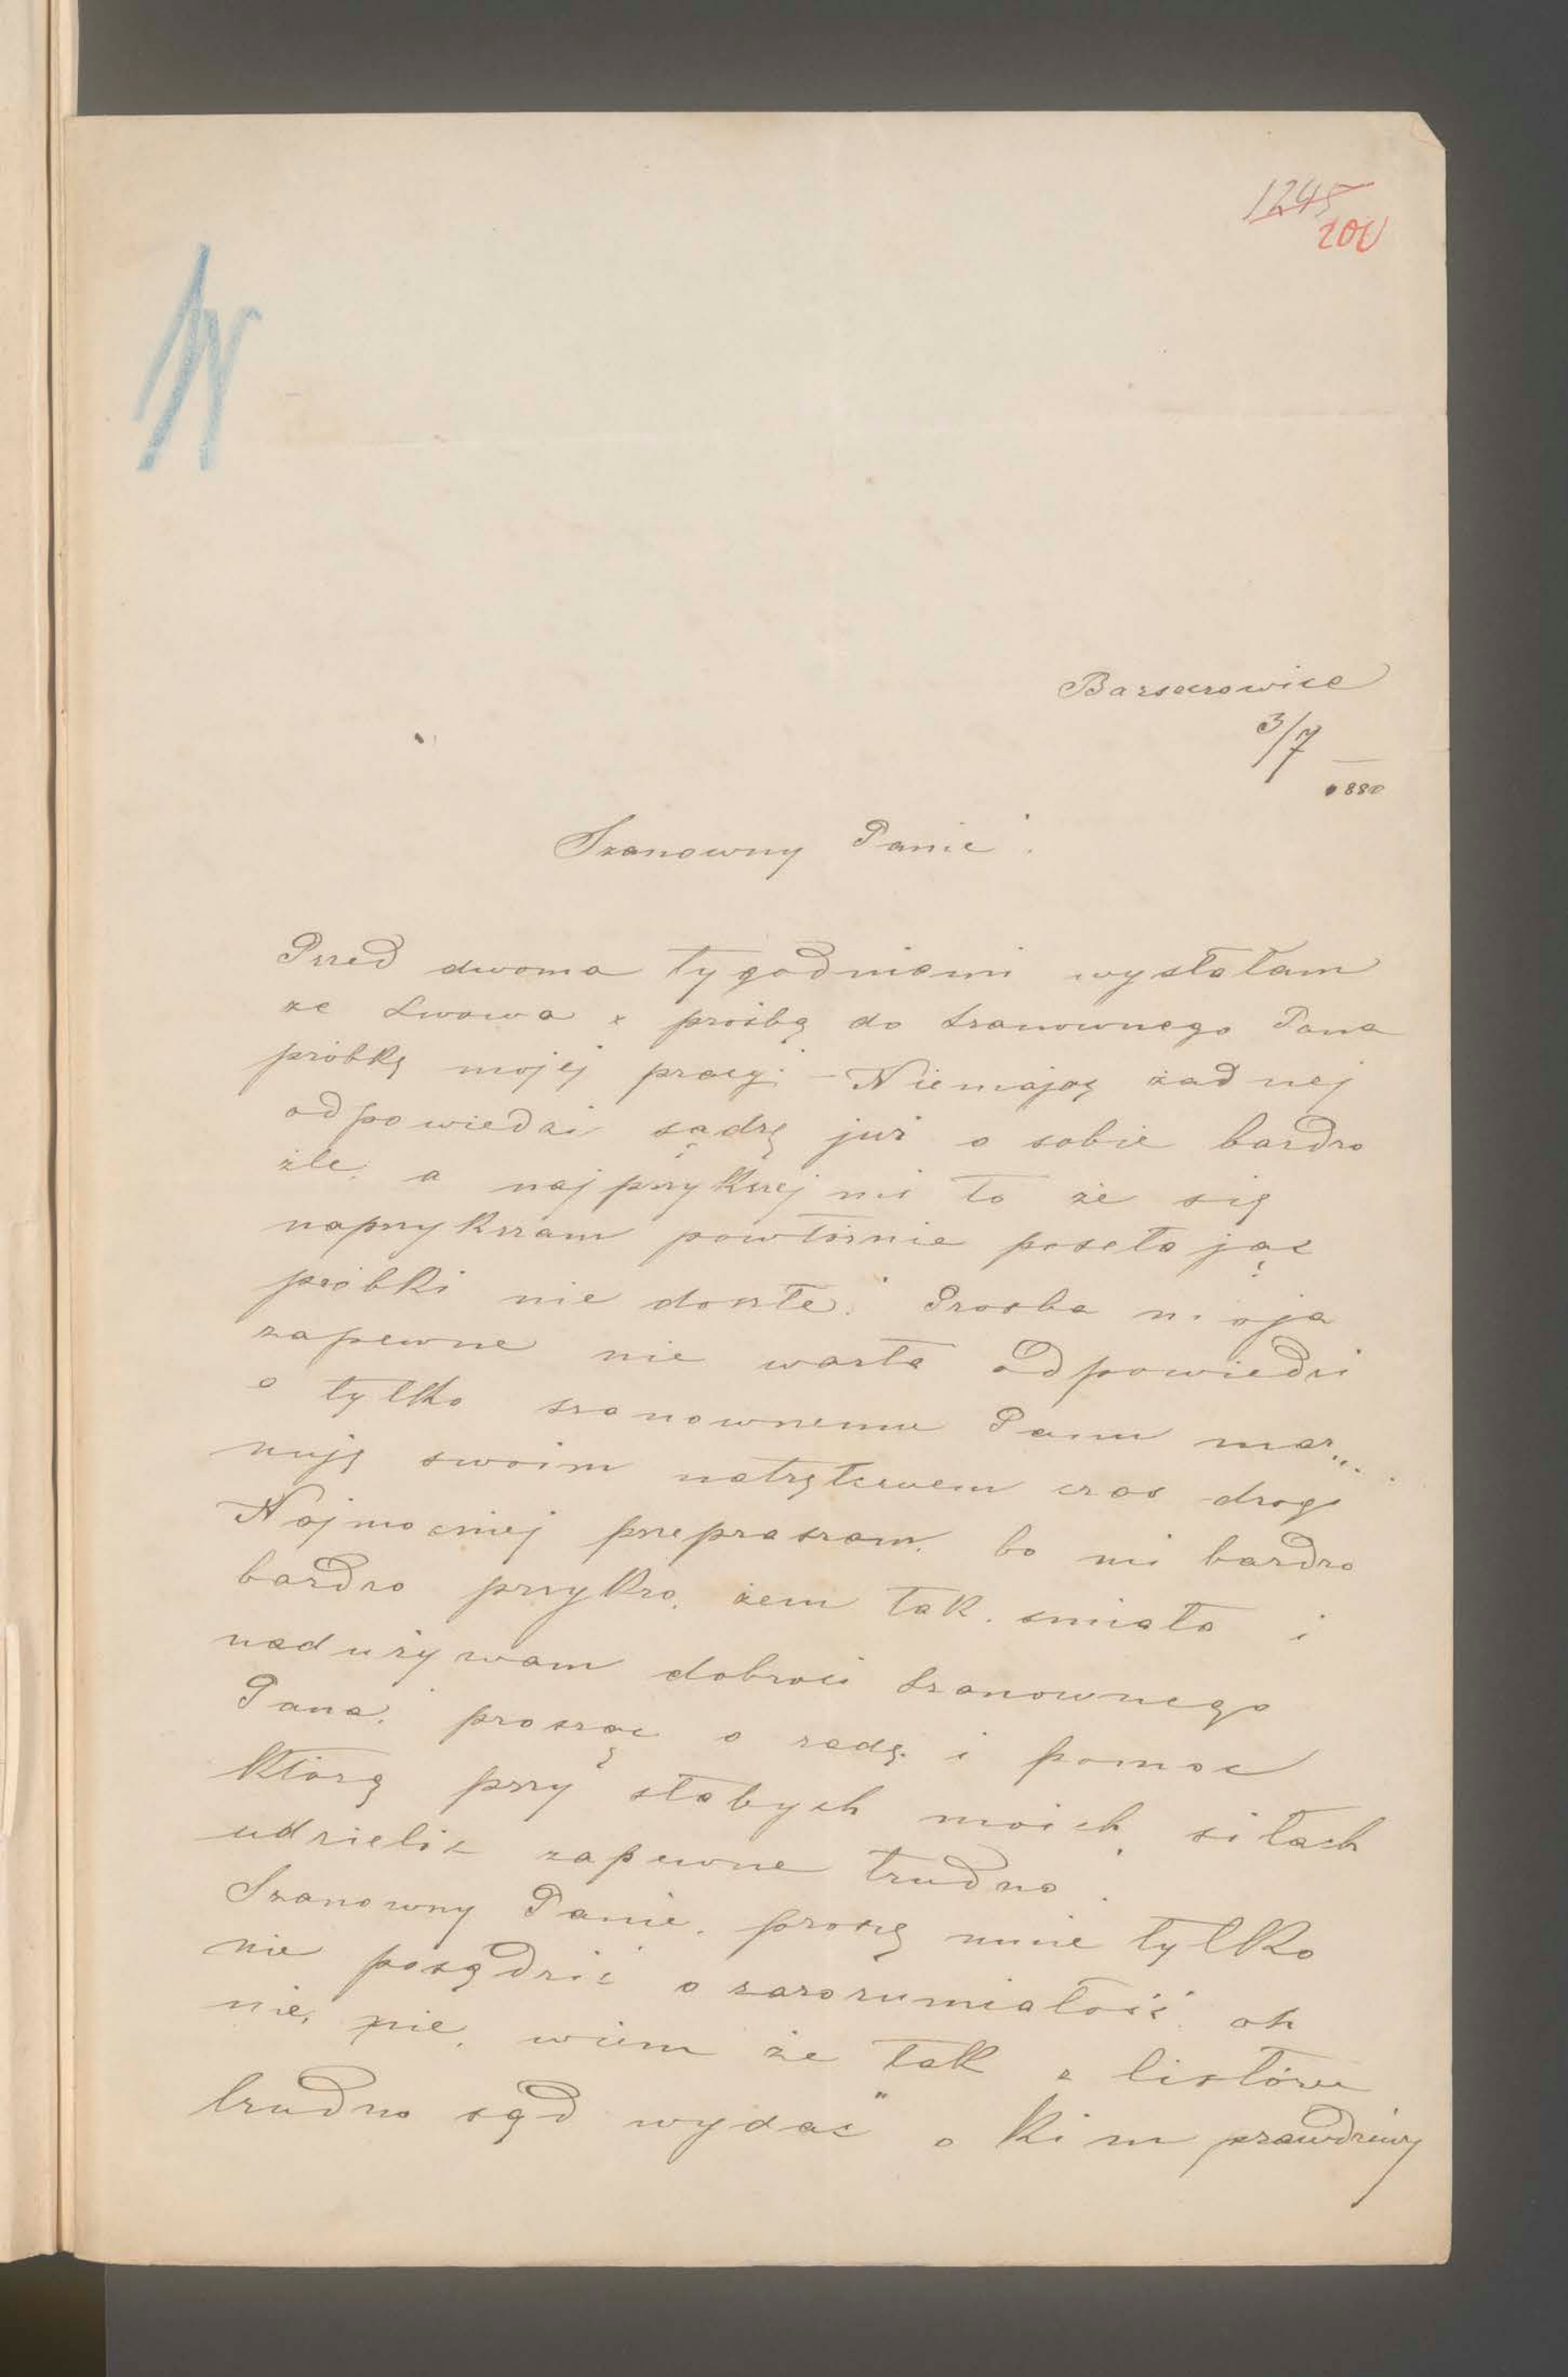 1245
200
N
Barszczowice
3/7
880
Szanowny Panie!
Przed dwoma tygodniami wysłałam
ze Lwowa z prośbą do Szanownego Pana
próbkę mojej pracy. – Niemając żadnej
odpowiedzi sądzę już o sobie bardzo
źle, a najprzykrzej mi to że się
naprzykrzam powtórnie posełając
próbki nie doszłe. Prośba moja
zapewne nie warta odpowiedzi
a tylko szanownemu Panu mar...
nuję swoim natręctwem czas drogi
Najmocniej przepraszam, bo mi bardzo
bardzo przykro, żem tak śmiała i
nadużywam dobroci Szanownego
Pana, prosząc o radę i pomoc
którą przy słabych moich siłach
udzielić zapewne trudno.
Szanowny Panie, proszę mnie tylko
nie posądzić o zarozumiałość oh
nie, nie, wiem że tak z listów
trudno sąd wydać o kim prawdziwy